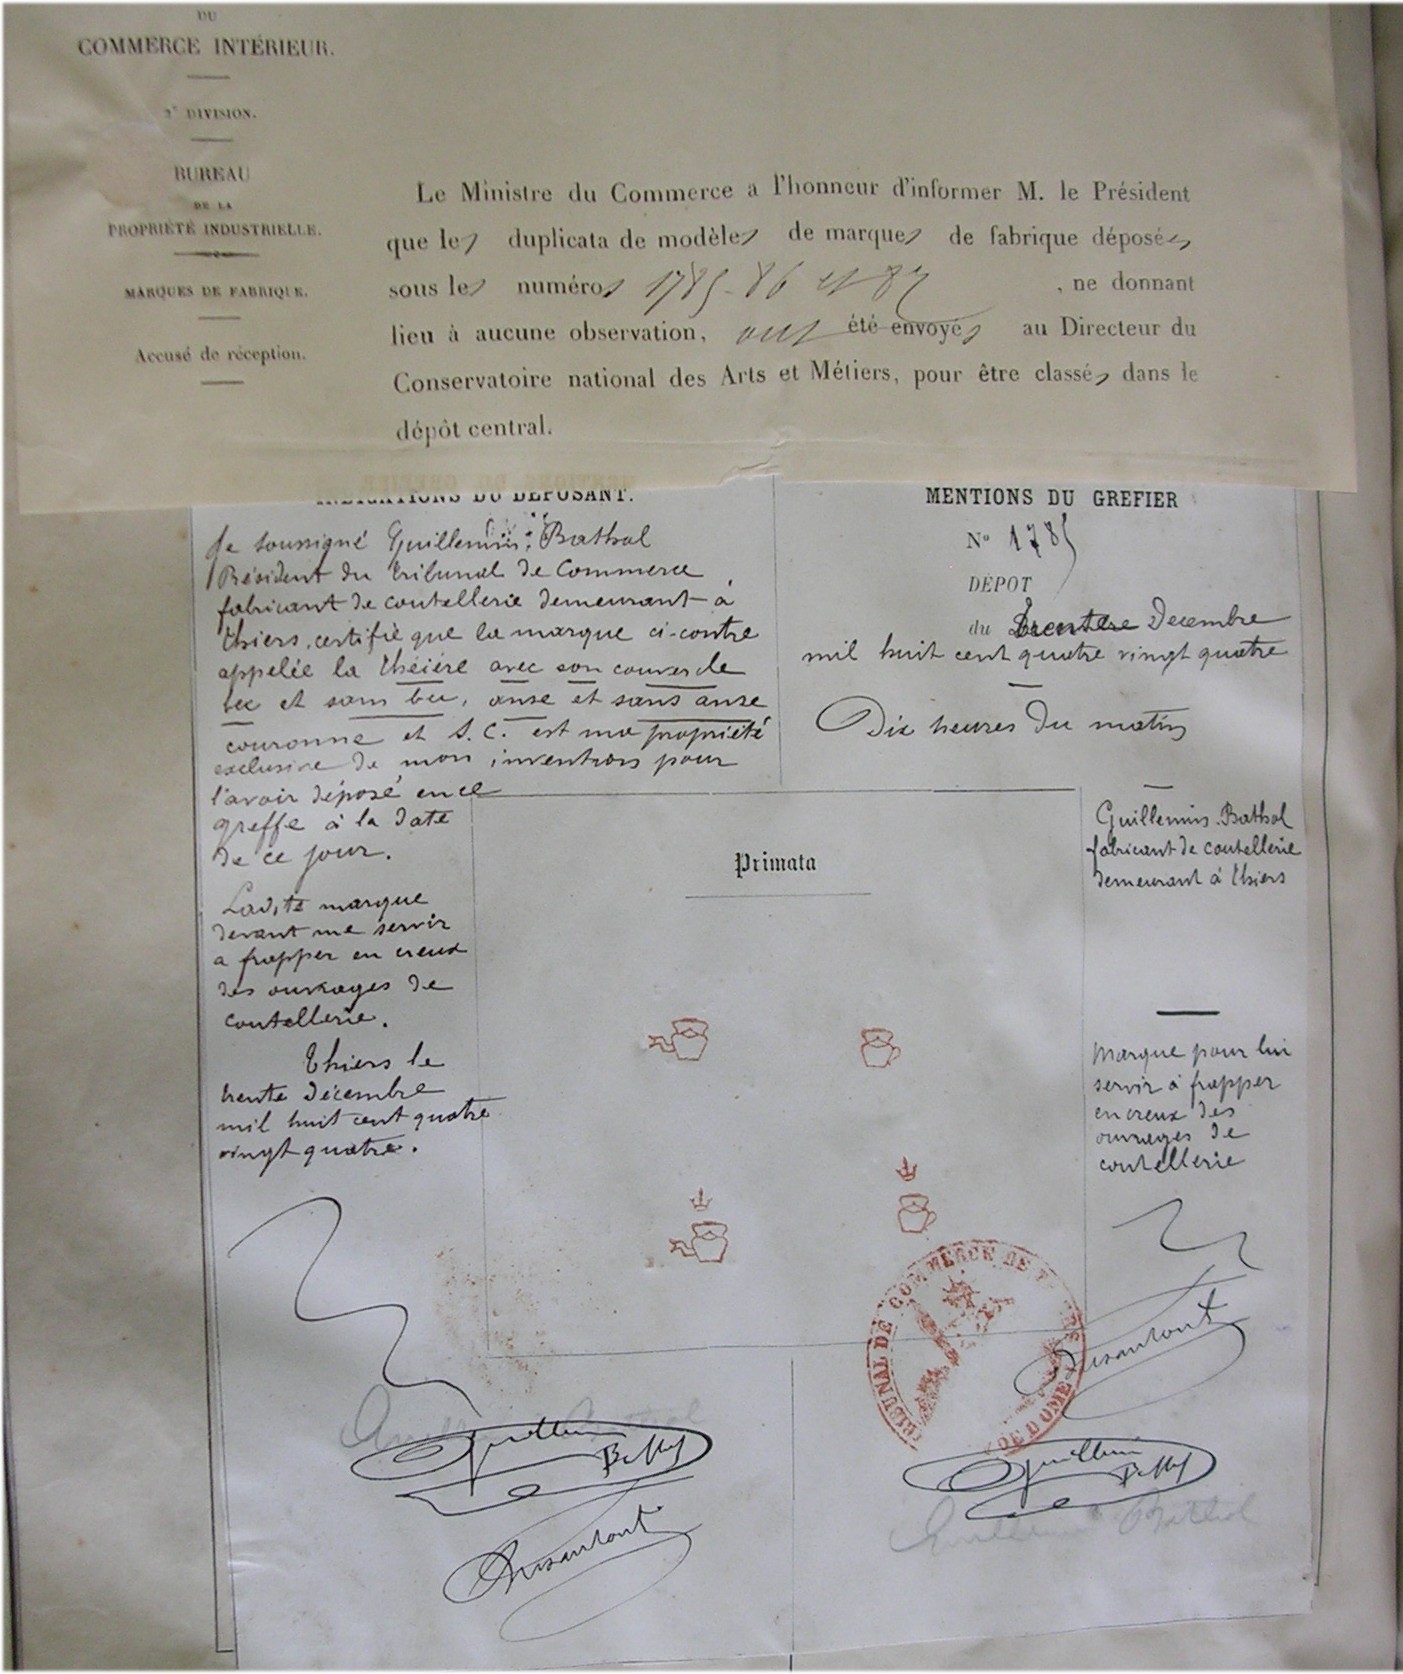 DU
COMMERCE INTÉRIEUR.
2e DIVISION.
BUREAU
DE LA
PROPRIÉTÉ INDUSTRIELLE.
MARQUES DE FABRIQUE.
Accusé de réception.
Le Ministre du Commerce a l'honneur d'informer M. le Président
que les duplicata de modèles de marques de fabrique déposés
sous les numéros 1785-86 et 87, ne donnant
lieu à aucune observation, ont été envoyés au Directeur du
Conservatoire national des Arts et Métiers, pour être classés dans le
dépôt central.
INDICATIONS DU DÉPOSANT.
Je soussigné Guillemin Bathol
Président du tribunal de Commerce
fabricant de coutellerie demeurant à
Thiers, certifie que la marque ci-contre
appelée la théière avec son couvercle
bec et sans bec, anse et sans anse
couronne et S.C. est ma propriété
exclusive de mon invention pour
l'avoir déposé en ce
greffe à la date
de ce jour.
Ladite marque
devant me servir
a frapper en creux
des ouvrages de
coutellerie.
Thiers le
trente décembre
mil huit cent quatre
vingt quatre.
MENTIONS DU GREFIER
No 1785
DÉPOT
du trente Decembre
mil huit cent quatre vingt quatre
Dix heures du matin
Guillemin Bathol
fabricant de coutellerie
demeurant à Thiers
Marque pour lui
servir à frapper
en creux des
ouvrages de
coutellerie
Primata
TRIBUNAL DE COMMERCE DE
DE DOME
Guillemin Bathol
Guillemin Bathol